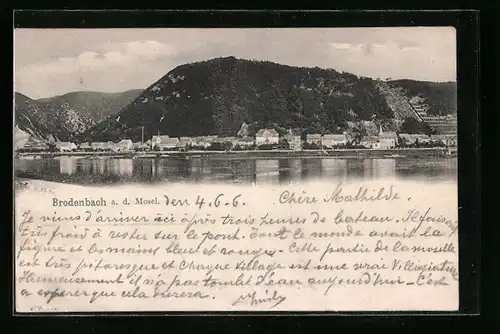 Brodenbach a. d. Mosel. den 4.6.6. Chère Mathilde.
Je viens d'arriver ici après trois heures de bateau. Il faisait
très froid à rester sur le pont, dont le monde avait la
figure et les mains bleu et rouges - Cette partie de la moselle
est très pitoresque et chaque village est une vraie Villegiature
Heureusement il n'a pas tombé d'eau aujourd'hui - C'est
a esperer que cela durera.